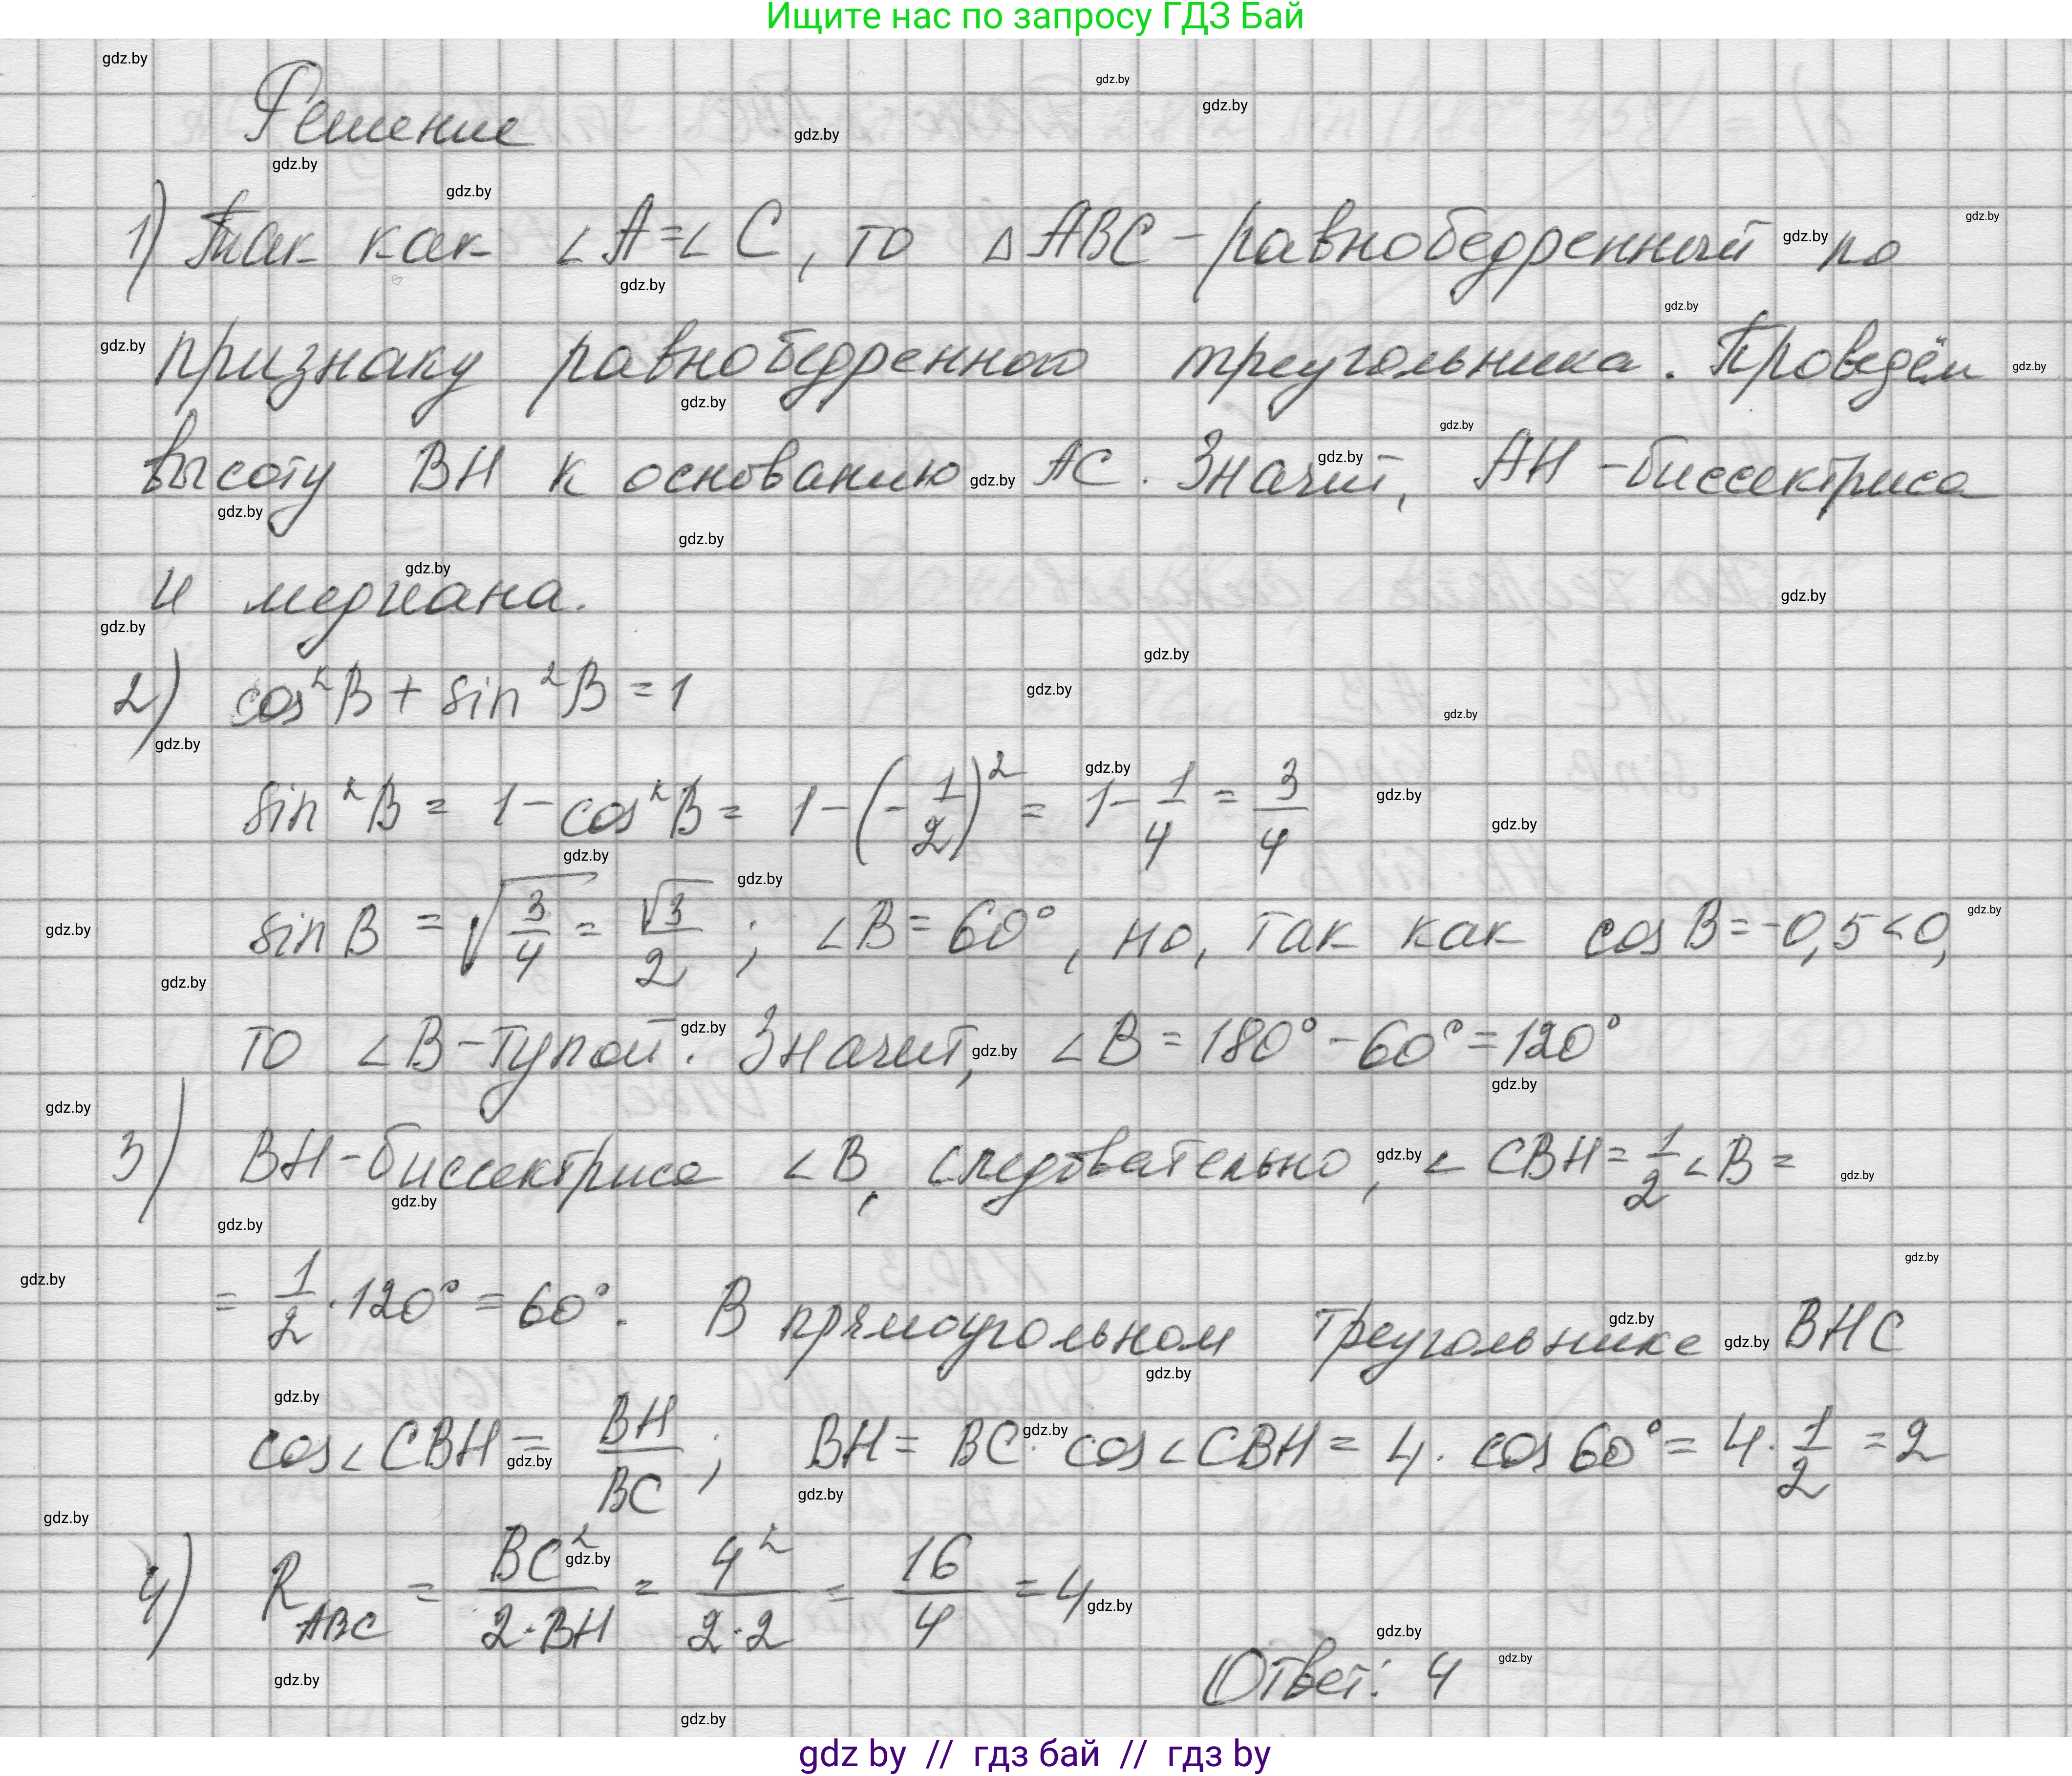 Ищите нас по запросу ГДЗ Бай
gdz.by
Решение
1) Так как ∠A=∠C, то △ABC - равнобедренный по
признаку равнобедренного треугольника. Проведём
высоту BH к основанию AC. Значит, AH - биссектриса
и медиана.
2) cos²B + sin²B = 1
sin²B = 1 - cos²B = 1 - (-1/2)² = 1 - 1/4 = 3/4
sin B = √(3/4) = √3/2 ; ∠B = 60°, но, так как cos B = -0,5 < 0,
то ∠B - тупой. Значит, ∠B = 180° - 60° = 120°
3) BH - биссектриса ∠B, следовательно, ∠CBH = 1/2 ∠B =
= 1/2 · 120° = 60°. В прямоугольном треугольнике BHC
cos∠CBH = BH/BC ; BH = BC · cos∠CBH = 4 · cos 60° = 4 · 1/2 = 2
4) R ABC = BC²/(2·BH) = 4²/(2·2) = 16/4 = 4
Ответ: 4
gdz by // гдз бай // гдз by